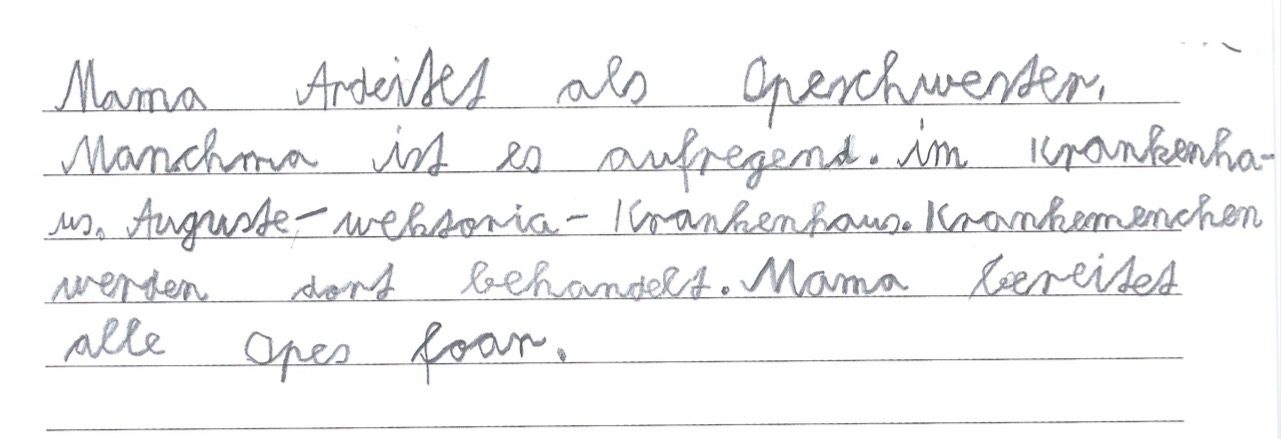 Mama Ardeitet als Opeschwester.
Manchma ist es aufregend. im Krankenha-
us. Auguste-wektoria-Krankenhaus. Krankemenchen
werden dort behandelt. Mama bereitet
alle Opes foar.